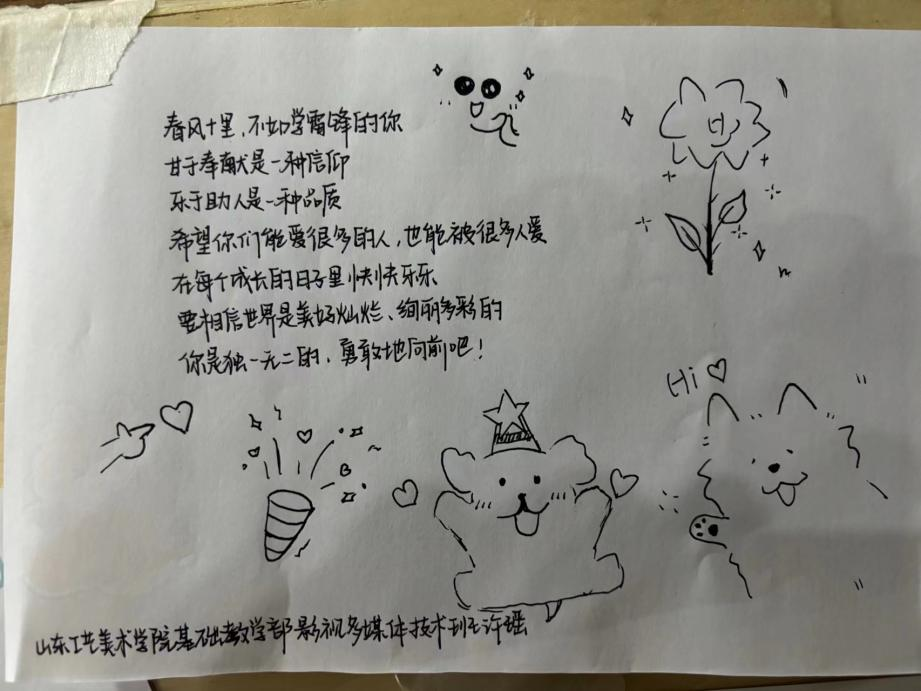 春风十里，不如学雷锋的你
甘于奉献是一种信仰
乐于助人是一种品质
希望你们能爱很多的人，也能被很多人爱
在每个成长的日子里快快乐乐
要相信世界是美好灿烂、绚丽多彩的
你是独一无二的，勇敢地向前吧！
Hi
山东工艺美术学院基础教学部影视多媒体技术班许瑶